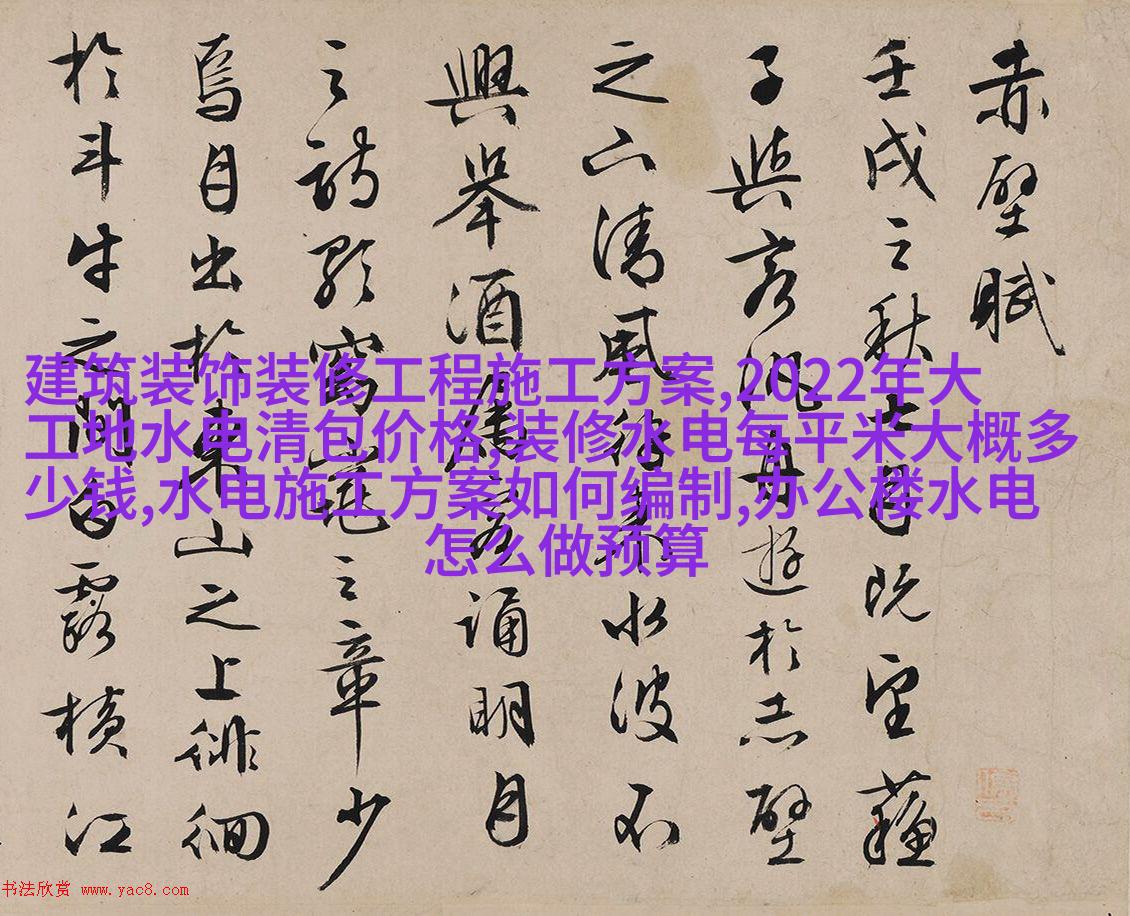 赤壁賦
壬戌之秋七月既望蘓
子與客汎舟遊於赤壁
之下清風徐來水波不
興舉酒屬客誦明月
之詩歌窈窕之章少
焉月出於東山之上徘徊
於斗牛之間白露横江
建筑装饰装修工程施工方案,2022年大
工地水电清包价格,装修水电每平米大概多
少钱,水电施工方案如何编制,办公楼水电
怎么做预算
书法欣赏 www.yac8.com